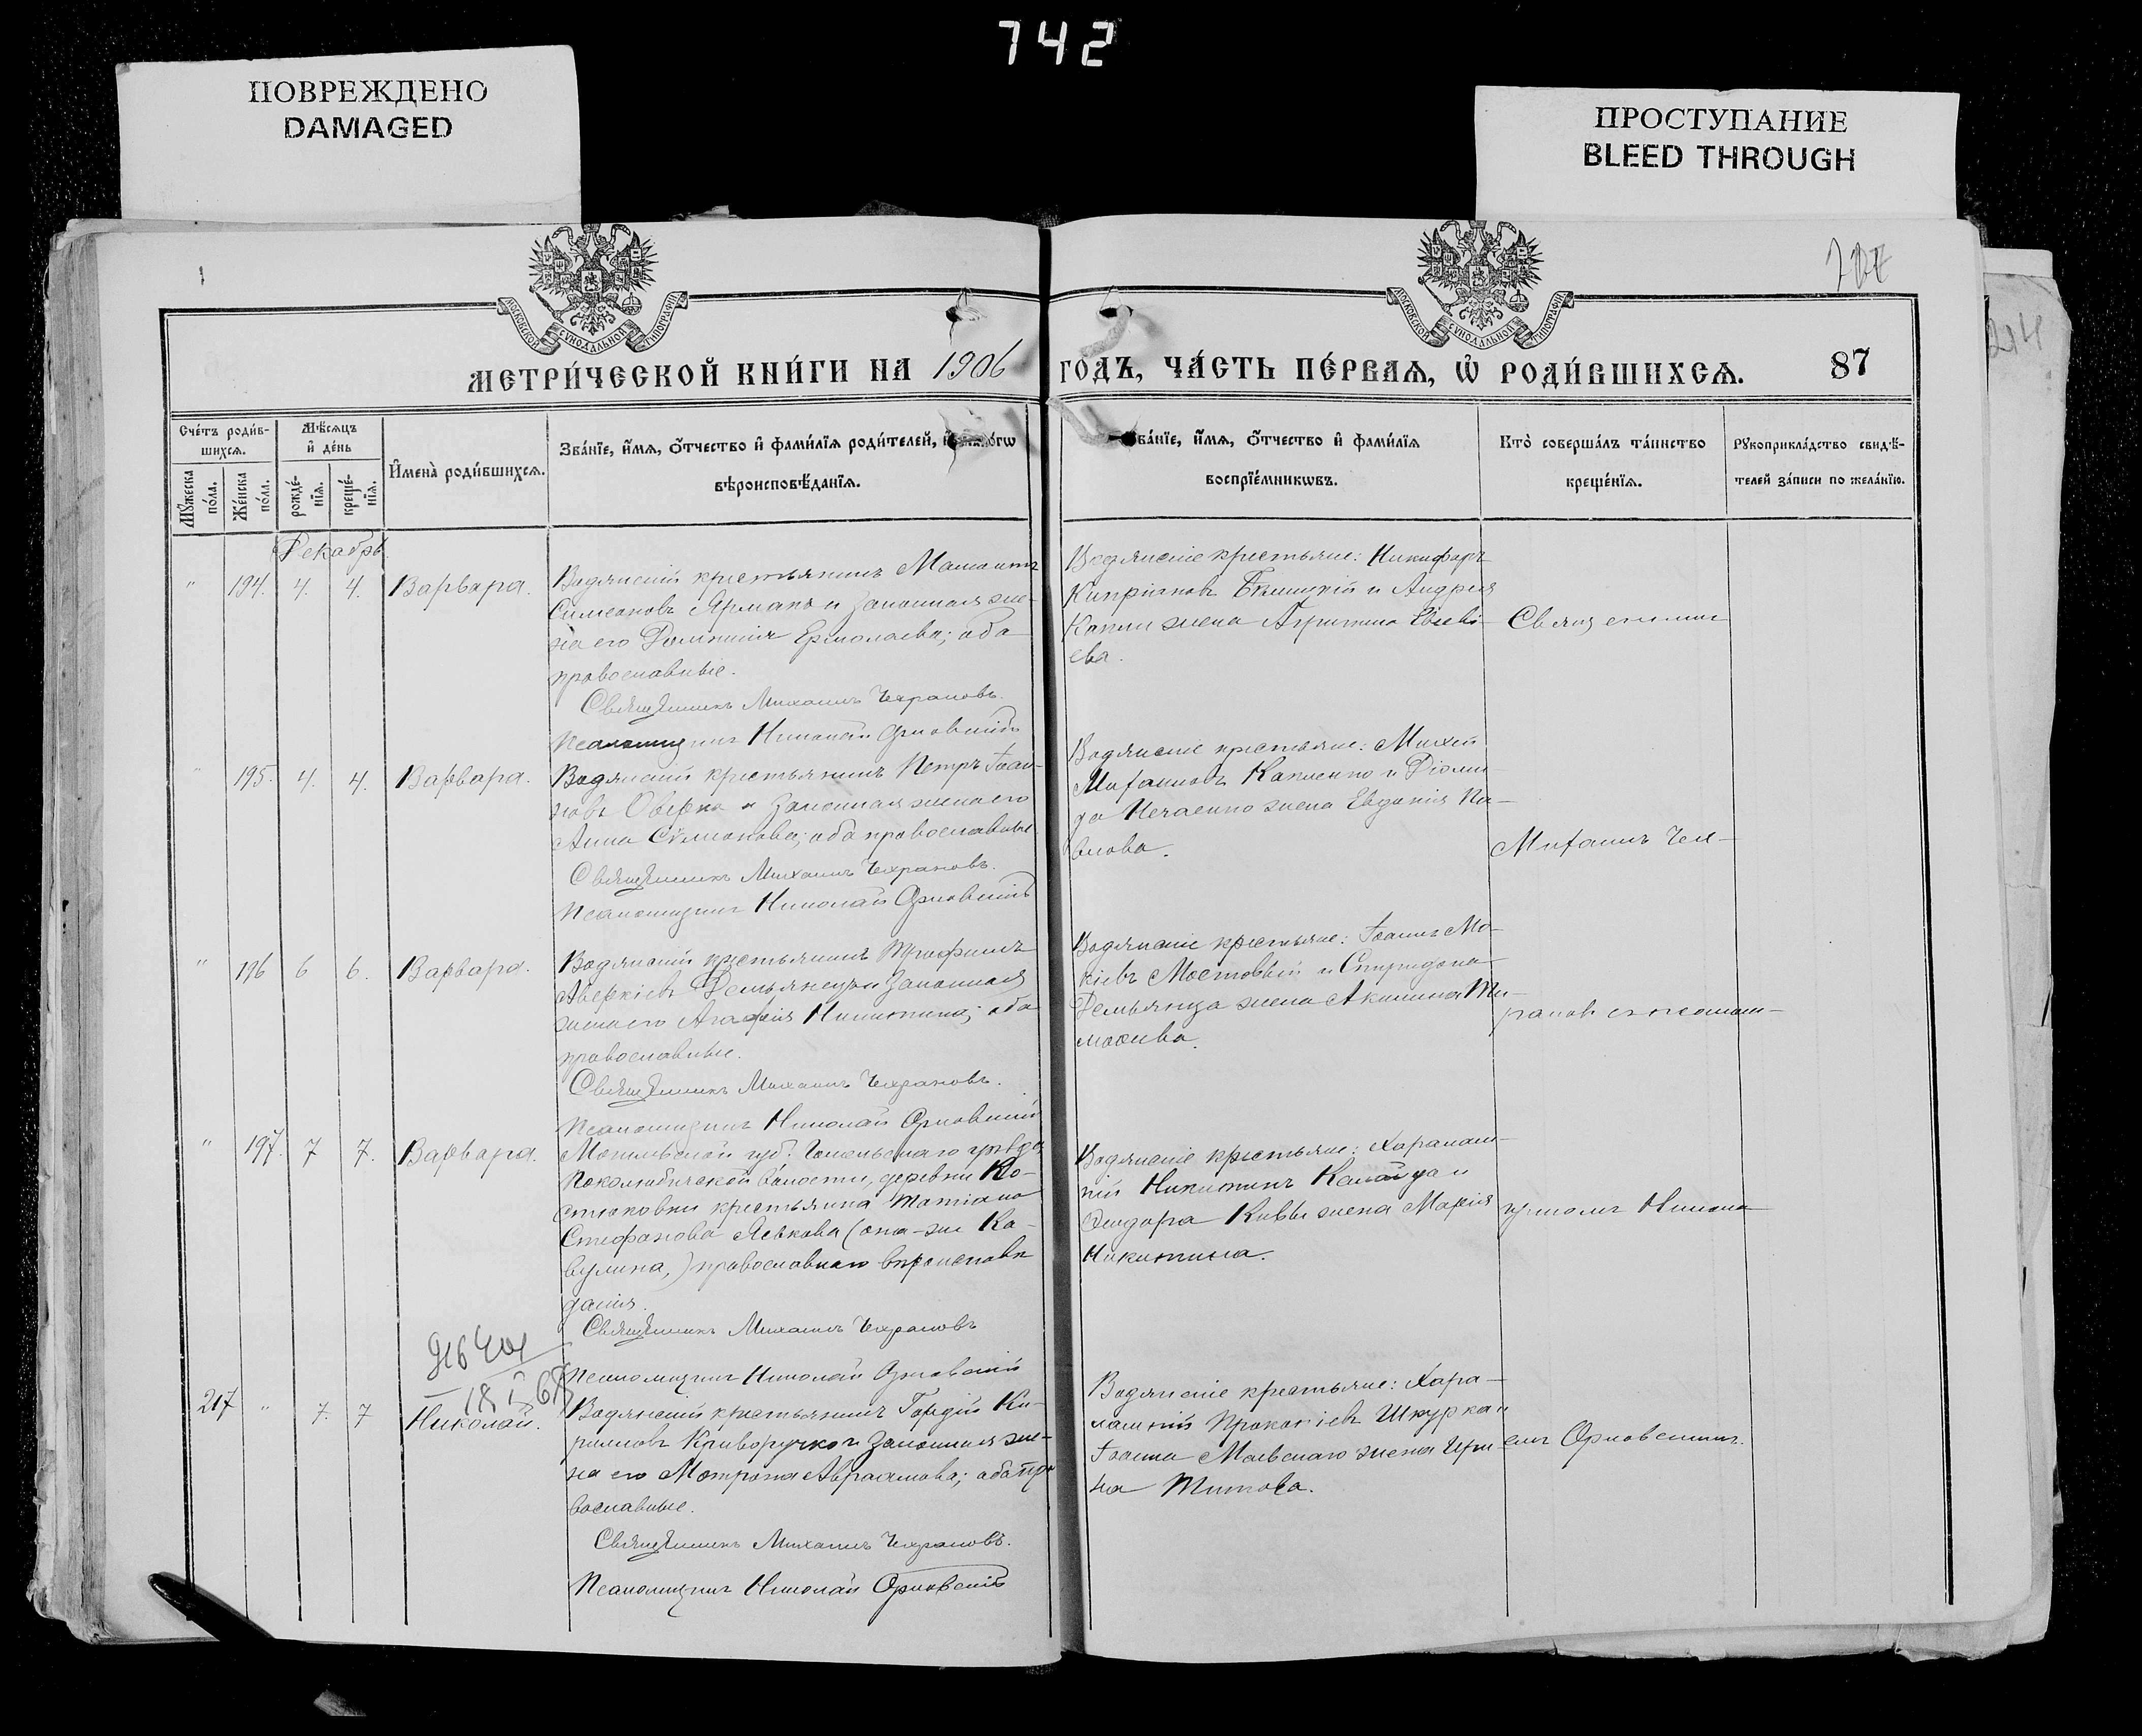 742
ПОВРЕЖДЕНО
DAMAGED
ПРОСТУПАНИЕ
BLEED THROUGH
МОСКОВСКОЙ СѴНОДАЛЬНОЙ ТИПОГРАФІИ
МОСКОВСКОЙ СѴНОДАЛЬНОЙ ТИПОГРАФІИ
МЕТРИ́ЧЕСКОЙ КНИ́ГИ НА 1906 ГОДЪ, ЧА́СТЬ ПЕ́РВАѦ, Ѡ҆ РОДИ́ВШИХСѦ. 87
Сче́тъ роди́в-
шихсѧ.
Мꙋ́жеска
по́ла.
Же́нска
по́ла.
Мѣ́сѧцъ
и҆ де́нь
рожде́-
нїѧ.
креще́-
нїѧ.
И҆мена̀ роди́вшихсѧ.
Зва́нїе, и҆́мѧ, ѻ҆́тчество и҆ фами́лїѧ роди́телей, и҆
вѣроисповѣ́данїѧ.
Зва́нїе, и҆́мѧ, ѻ҆́тчество и҆ фами́лїѧ
воспрїе́мникѡвъ.
Кто̀ соверша́лъ та́инство
креще́нїѧ.
Рꙋкоприкла́дство свидѣ́-
телей за́писи по жела́нїю.
Декабрь
" 194. 4. 4. Варвара.
Водянскій крестьянинъ
Симеоновъ Ярмакъ и законная же-
на его Домникія Ермолаева; оба
православные.
Священникъ Михаилъ Чехрановъ.
Псаломщикъ Николай Орловскій
Водянскіе крестьяне: Никифоръ
Кипріяновъ и Андрея
жена
ева.
Священник
" 195. 4. 4. Варвара.
Водянскій крестьянинъ Петръ Іоан-
новъ Оверко и законная жена его
Анна Симеонова; оба православные
Священникъ Михаилъ Чехрановъ.
Псаломщикъ Николай Орловскій
Водянскіе крестьяне: Михей
Михаиловъ Капленко и Діоми-
да Нечаенко жена Евдокія Па-
влова.
Михаилъ Чех-
" 196 6 6. Варвара.
Водянскій крестьянинъ Трофимъ
Аверкіевъ Демьянецъ и законная
жена его Агафія Никитина; оба
православные.
Священникъ Михаилъ Чехрановъ.
Псаломщикъ Николай Орловскій
Водянскіе крестьяне: Іоаннъ Мо-
кіевъ Мостовый и Спиридона
Демьянца жена Акилина Ти-
моѳеева.
рановъ съ псалом-
" 197. 7 7. Варвара.
Могилевской губ. Гомельскаго уѣзда
Поколюбичской волости, деревни Ко-
стюковки крестьянка Татіана
Стефанова Левкова (она-же Ка-
вулина,) православнаго вѣроисповѣ
данія.
Священникъ Михаилъ Чехрановъ
Псаломщикъ Николай Орловскій
Водянскіе крестьяне: Харалам-
пій Никитинъ и
жена Марія
Никитина.
щикомъ Никола-
18 I 68
217 " 7. 7 Николай.
Водянскій крестьянинъ Гордій Ки-
рилловъ Криворучко и законная же-
на его Мотрона Авраамова; оба пра
вославные.
Священникъ Михаилъ Чехрановъ.
Псаломщикъ Николай Орловскій
Водянскіе крестьяне: Хара-
лампій Прокопіевъ Шкурка и
Іоанна Маевскаго жена Ири-
на Титова.
емъ Орловскимъ.